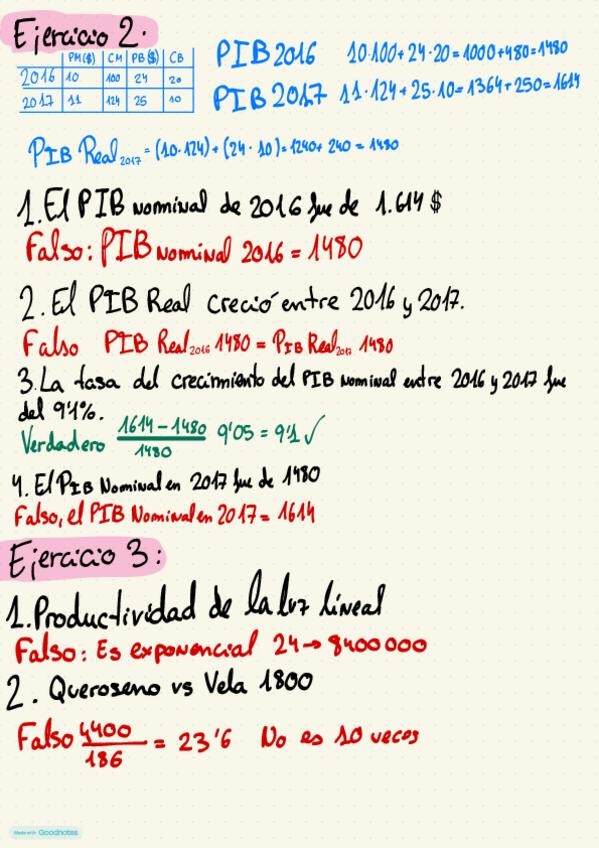 Ejercicio 2.
PM($) CM PB($) CB
2016 10 100 24 20
2017 11 124 25 10
PIB 2016 10·100+24·20=1000+480=1480
PIB 2017 11·124+25·10=1364+250=1614
PIB Real2017=(10·124)+(24·10)=1240+240=1480
1. El PIB nominal de 2016 fue de 1.614 $
Falso: PIB nominal 2016 = 1480
2. El PIB Real creció entre 2016 y 2017.
Falso PIB Real2016 1480 = PIB Real2017 1480
3. La tasa del crecimiento del PIB nominal entre 2016 y 2017 fue
del 9'1%.
Verdadero 1614-1480/1480 9'05 = 9'1 ✓
4. El PIB Nominal en 2017 fue de 1480
Falso, el PIB Nominal en 2017 = 1614
Ejercicio 3:
1. Productividad de la luz lineal
Falso: Es exponencial 24→8400000
2. Queroseno vs Vela 1800
Falso 4400/186 = 23'6 No es 10 veces
Made with Goodnotes